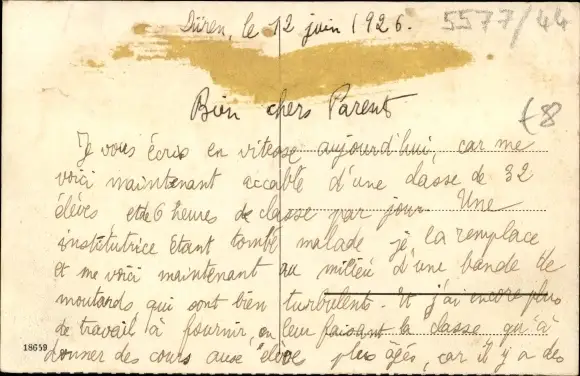 Düren, le 12 juin 1926.
5577/44
€8
Bien chers Parents
Je vous écris en vitesse aujourd'hui, car me
voici maintenant accablé d'une classe de 32
élèves et de 6 heures de classe par jour. Une
institutrice étant tombé malade je la remplace
et me voici maintenant au milieu d'une bande de
moutards qui sont bien turbulents. Et j'ai encore plus
de travail à fournir, en leur faisant la classe qu'à
donner des cours aux élève plus âgés, car il y a des
18659